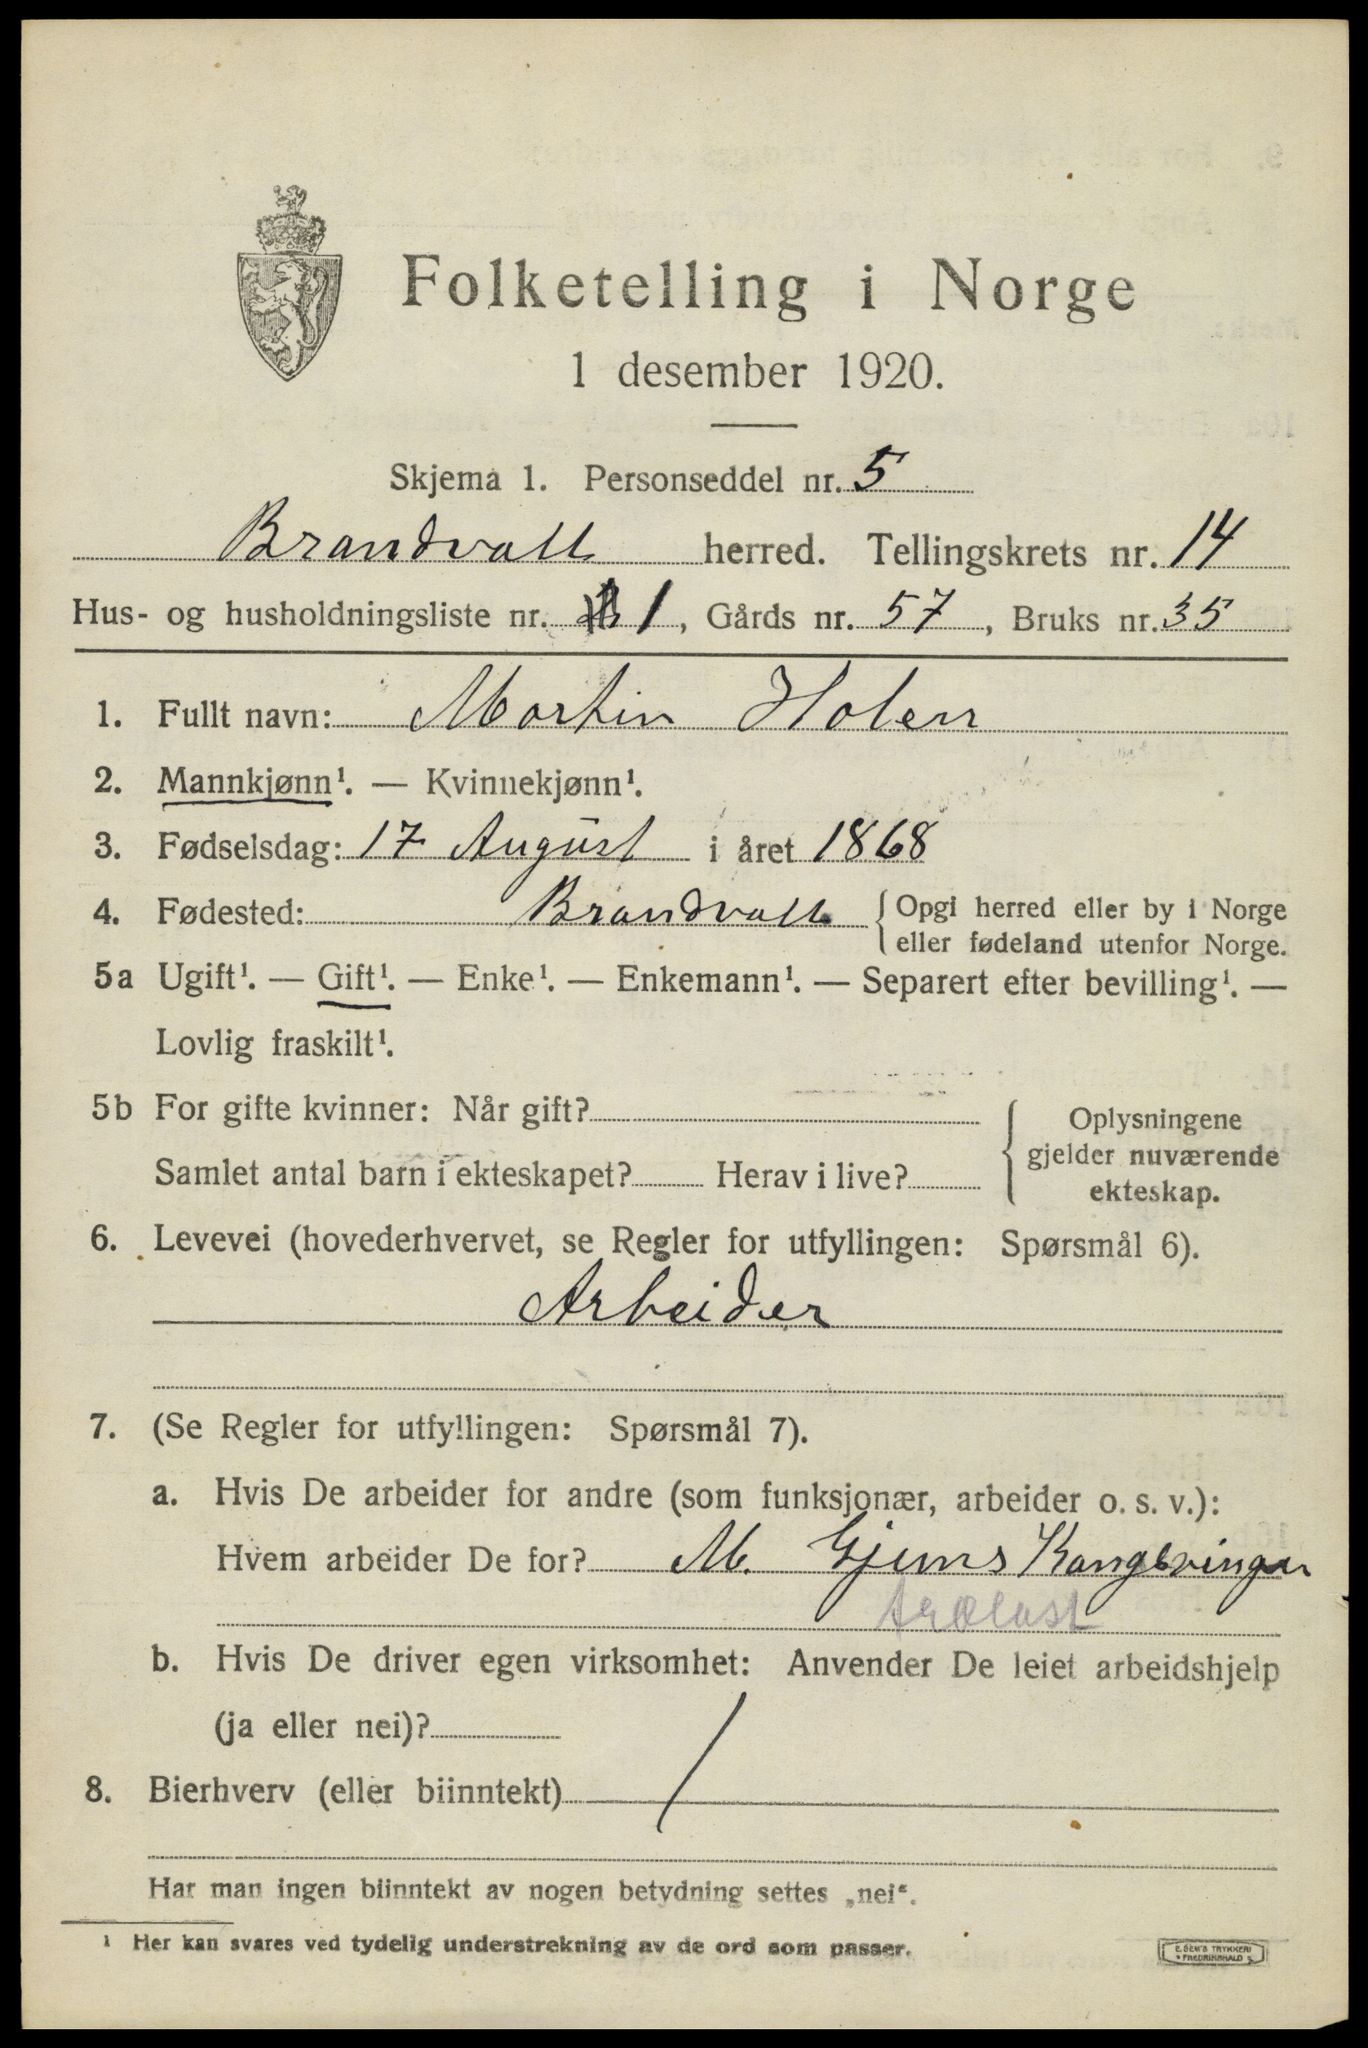 Folketelling i Norge
1 desember 1920.
Skjema 1. Personseddel nr. 5
Brandvall herred. Tellingskrets nr. 14
Hus- og husholdningsliste nr. 1, Gårds nr. 57, Bruks nr. 35
1. Fullt navn: Martin Holen
2. Mannkjønn¹. — Kvinnekjønn¹.
3. Fødselsdag: 17 August i året 1868
4. Fødested: Brandvall { Opgi herred eller by i Norge
eller fødeland utenfor Norge.
5a Ugift¹. — Gift¹. — Enke¹. — Enkemann¹. — Separert efter bevilling¹. —
Lovlig fraskilt¹.
5b For gifte kvinner: Når gift?
Samlet antal barn i ekteskapet? Herav i live?
Oplysningene
gjelder nuværende
ekteskap.
6. Levevei (hovederhvervet, se Regler for utfyllingen: Spørsmål 6).
Arbeider
7. (Se Regler for utfyllingen: Spørsmål 7).
a. Hvis De arbeider for andre (som funksjonær, arbeider o. s. v.):
Hvem arbeider De for? M. Gjems Kongsvinger
Arblaust
b. Hvis De driver egen virksomhet: Anvender De leiet arbeidshjelp
(ja eller nei)?
8. Bierhverv (eller biinntekt) /
Har man ingen biinntekt av nogen betydning settes „nei“.
¹ Her kan svares ved tydelig understrekning av de ord som passer.
E. SEM'S TRYKKERI
FREDRIKSHALD